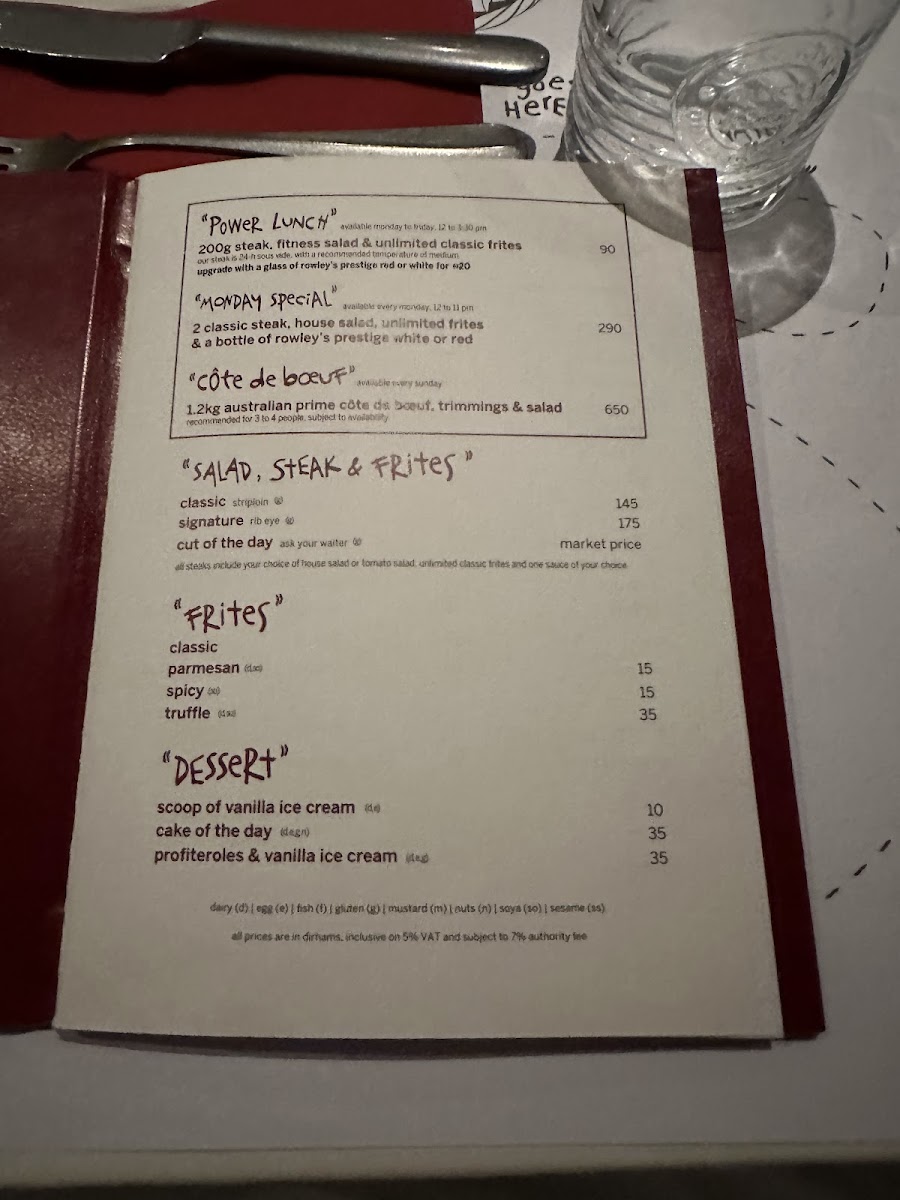 goe
HerE
"POWER LUNCH" available monday to friday, 12 to 3:30 pm
200g steak, fitness salad & unlimited classic frites 90
our steak is 24-h sous vide, with a recommended temperature of medium
upgrade with a glass of rowley's prestige red or white for
"MONDAY SPECIAL" available every monday, 12 to 11 pm
2 classic steak, house salad, unlimited frites 290
& a bottle of rowley's prestige white or red
"côte de bœuf" available every sunday
1.2kg australian prime côte de bœuf, trimmings & salad 650
recommended for 3 to 4 people, subject to availability
"SALAD, STEAK & FRITES"
classic striploin 145
signature rib eye 175
cut of the day ask your waiter market price
all steaks include your choice of house salad or tomato salad, unlimited classic frites and one sauce of your choice
"FRITES"
classic
parmesan 15
spicy 15
truffle 35
"DESSERT"
scoop of vanilla ice cream (d,e) 10
cake of the day (d,e,g,n) 35
profiteroles & vanilla ice cream (d,e,g) 35
dairy (d) | egg (e) | fish (f) | gluten (g) | mustard (m) | nuts (n) | soya (so) | sesame (ss)
all prices are in dirhams, inclusive on 5% VAT and subject to 7% authority fee